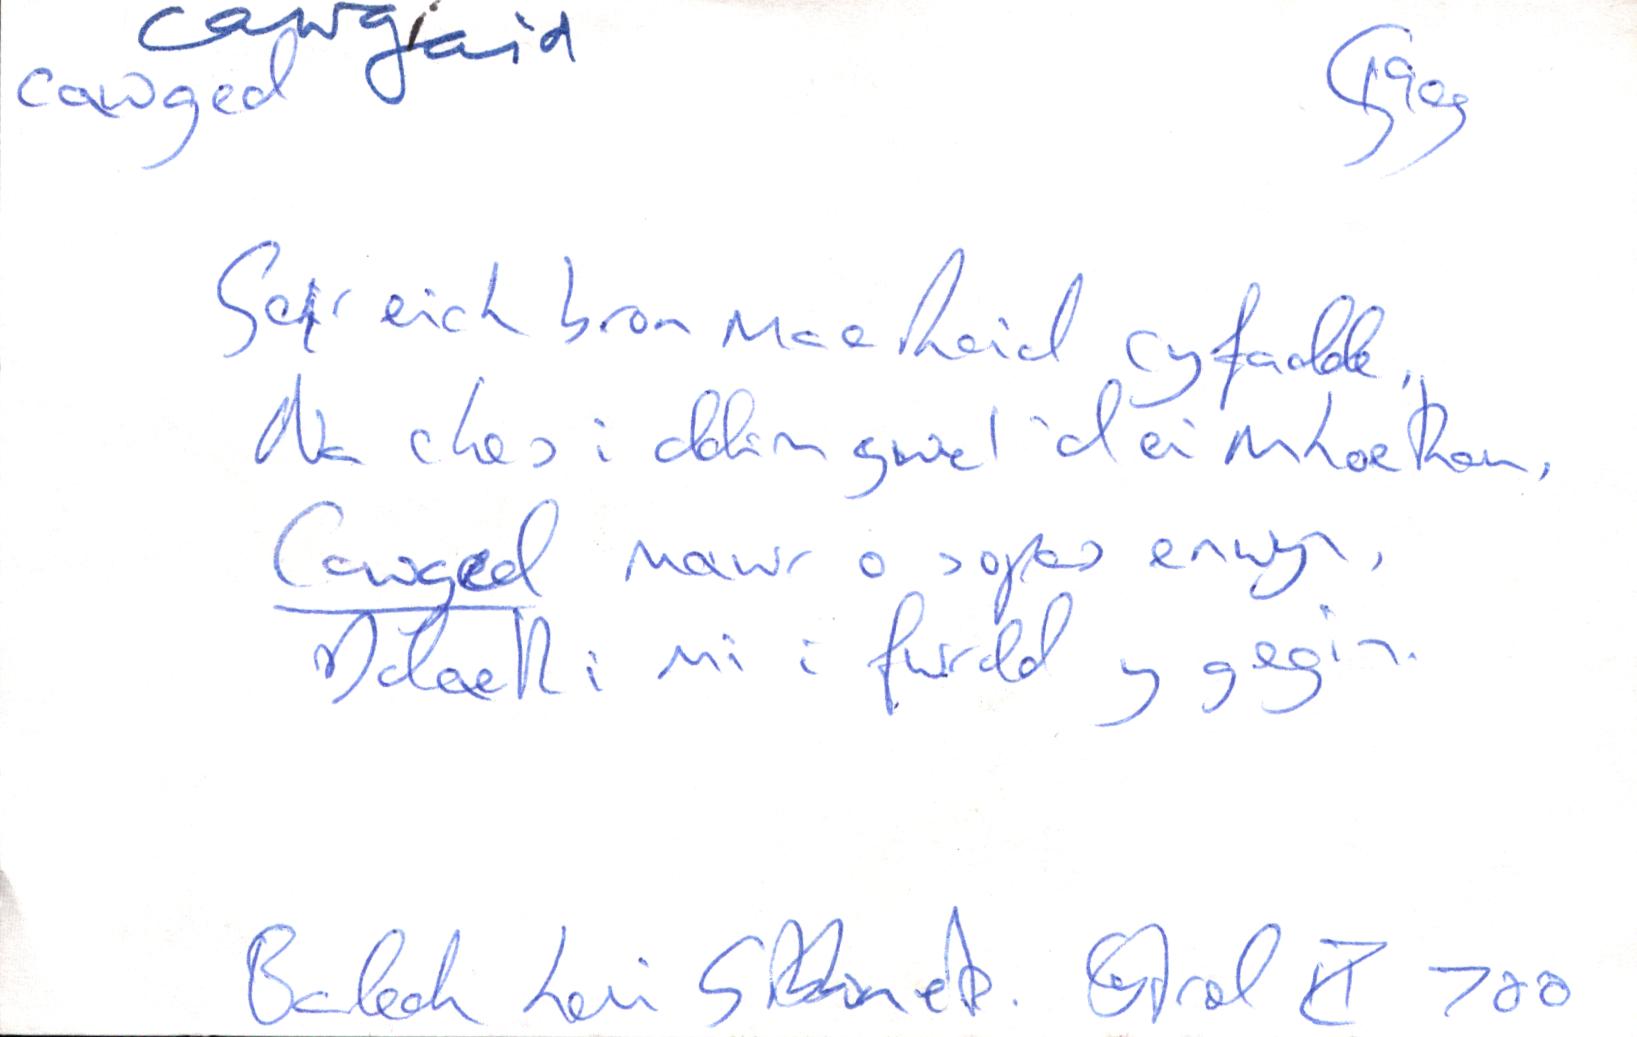 cawgiaid
cawged
1909
Ger eich bron mae rhaid cyfadde,
Na ches i ddim gweld ei mhoethau,
Cawged mawr o sopas enwyn,
Ddaeth i mi i fwrdd y gegin.
Baledi Levi Gibbon 700